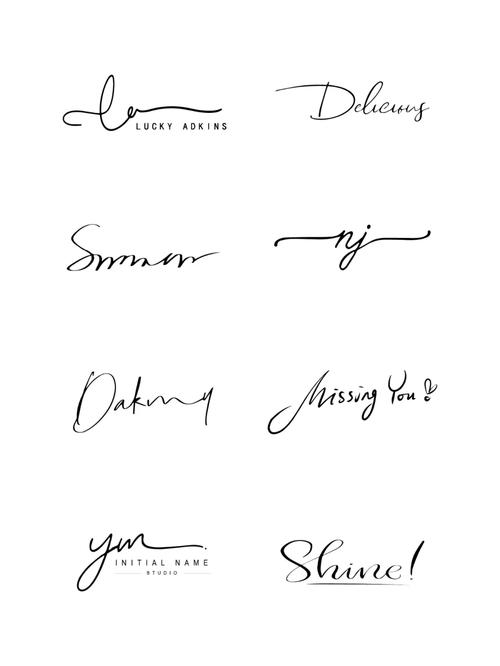 la
LUCKY ADKINS
Delicious
Summer
nj
Missing You
ym.
INITIAL NAME
STUDIO
Shine!